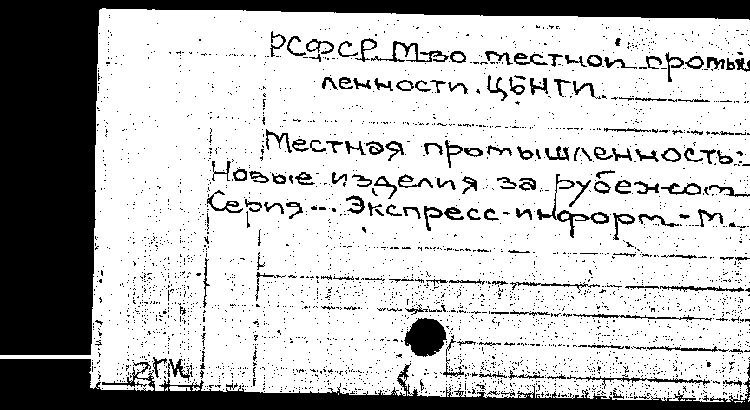 РСФСР. М-во местной промыш
ленности. ЦБНТИ.
Местная промышленность:
Новые изделия за рубежом
Серия... Экспресс-информ. - М.